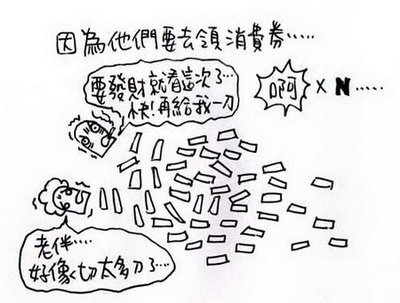 因為他們要去領消費券.....
要發財就看這次了...
快!再給我一刀
啊 x N.....
老伴....
好像切太多刀了....